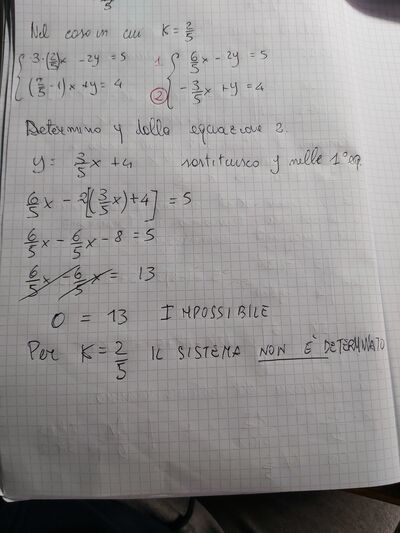 Nel caso in cui K = 2/5
{ 3·(2/5)x - 2y = 5
(2/5 - 1)x + y = 4
1 { 6/5 x - 2y = 5
2 - 3/5 x + y = 4
Determino y dalla equazione 2.
y = 3/5 x + 4 sostituisco y nella 1° eq.
6/5 x - 2[(3/5 x) + 4] = 5
6/5 x - 6/5 x - 8 = 5
6/5 x - 6/5 x = 13
0 = 13 IMPOSSIBILE
Per K = 2/5 IL SISTEMA NON È DETERMINATO